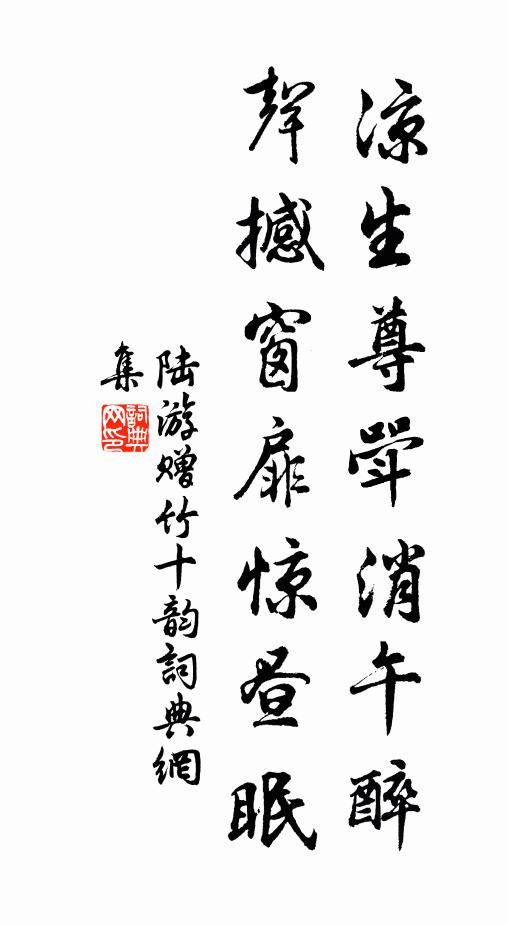 凉生尊斝消午醉
聲撼窗扉惊昼眠
陆游赠竹十韵詞典網
集
詞典
网印